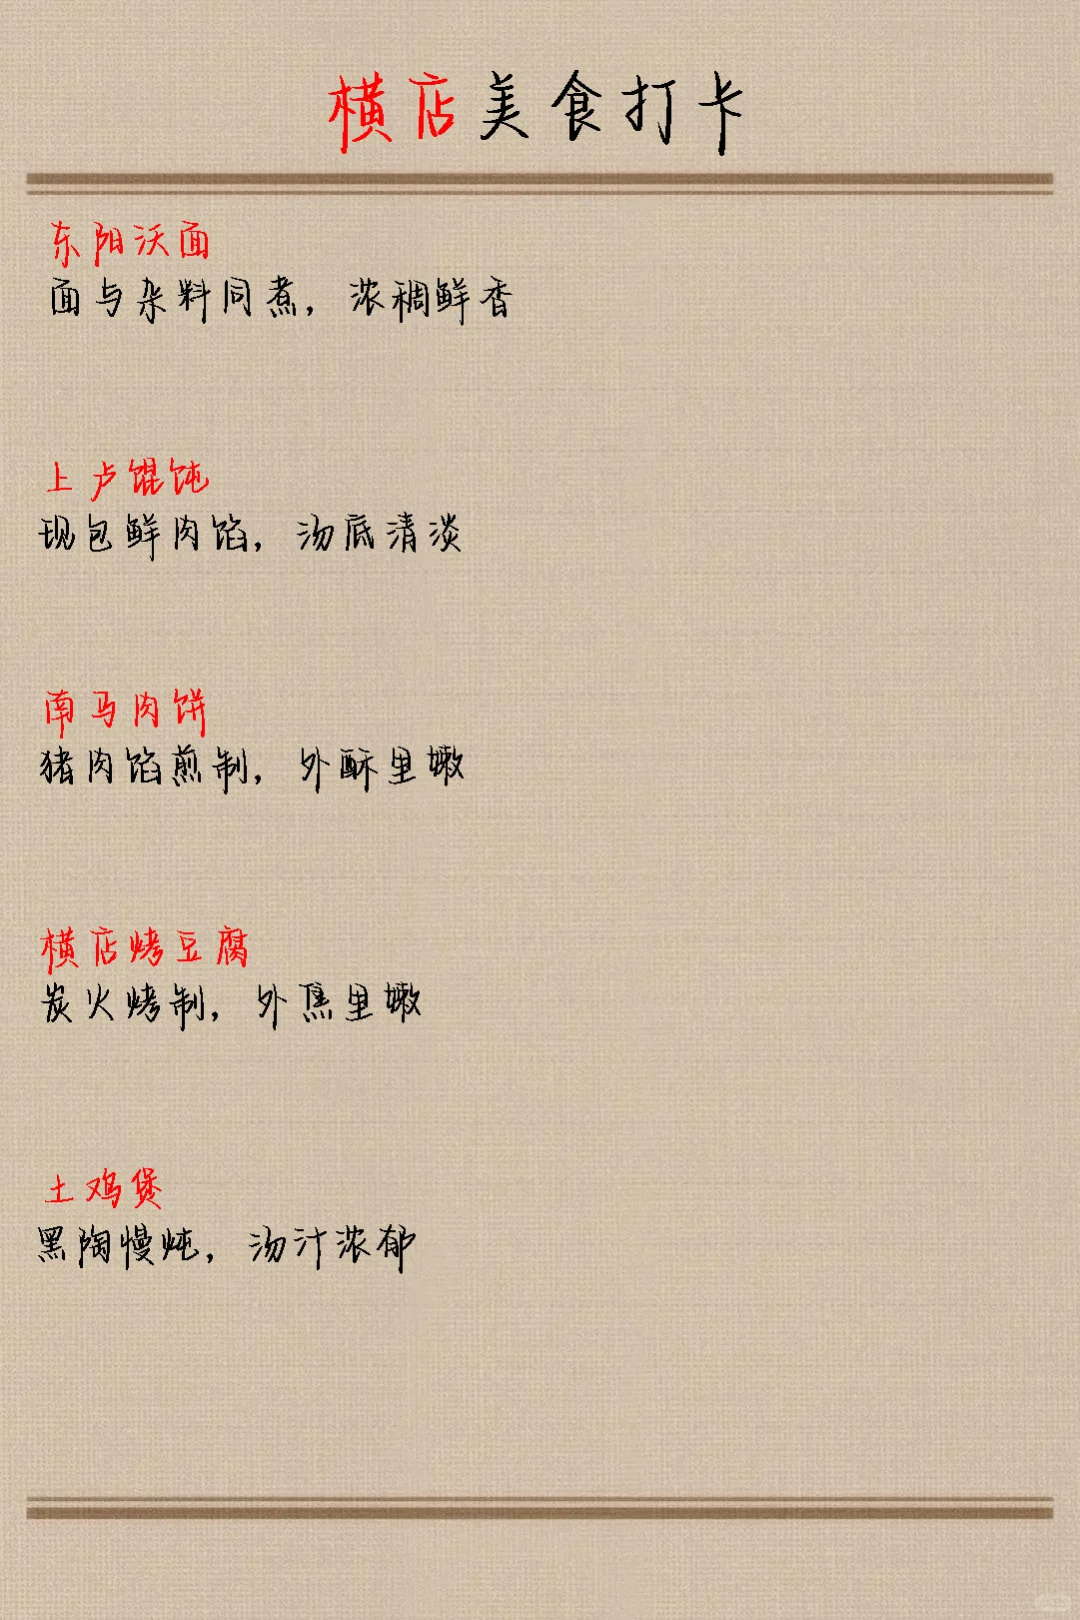 横店美食打卡
东阳沃面
面与杂料同煮，浓稠鲜香
上卢馄饨
现包鲜肉馅，汤底清淡
南马肉饼
猪肉馅煎制，外酥里嫩
横店烤豆腐
炭火烤制，外焦里嫩
土鸡煲
黑陶慢炖，汤汁浓郁